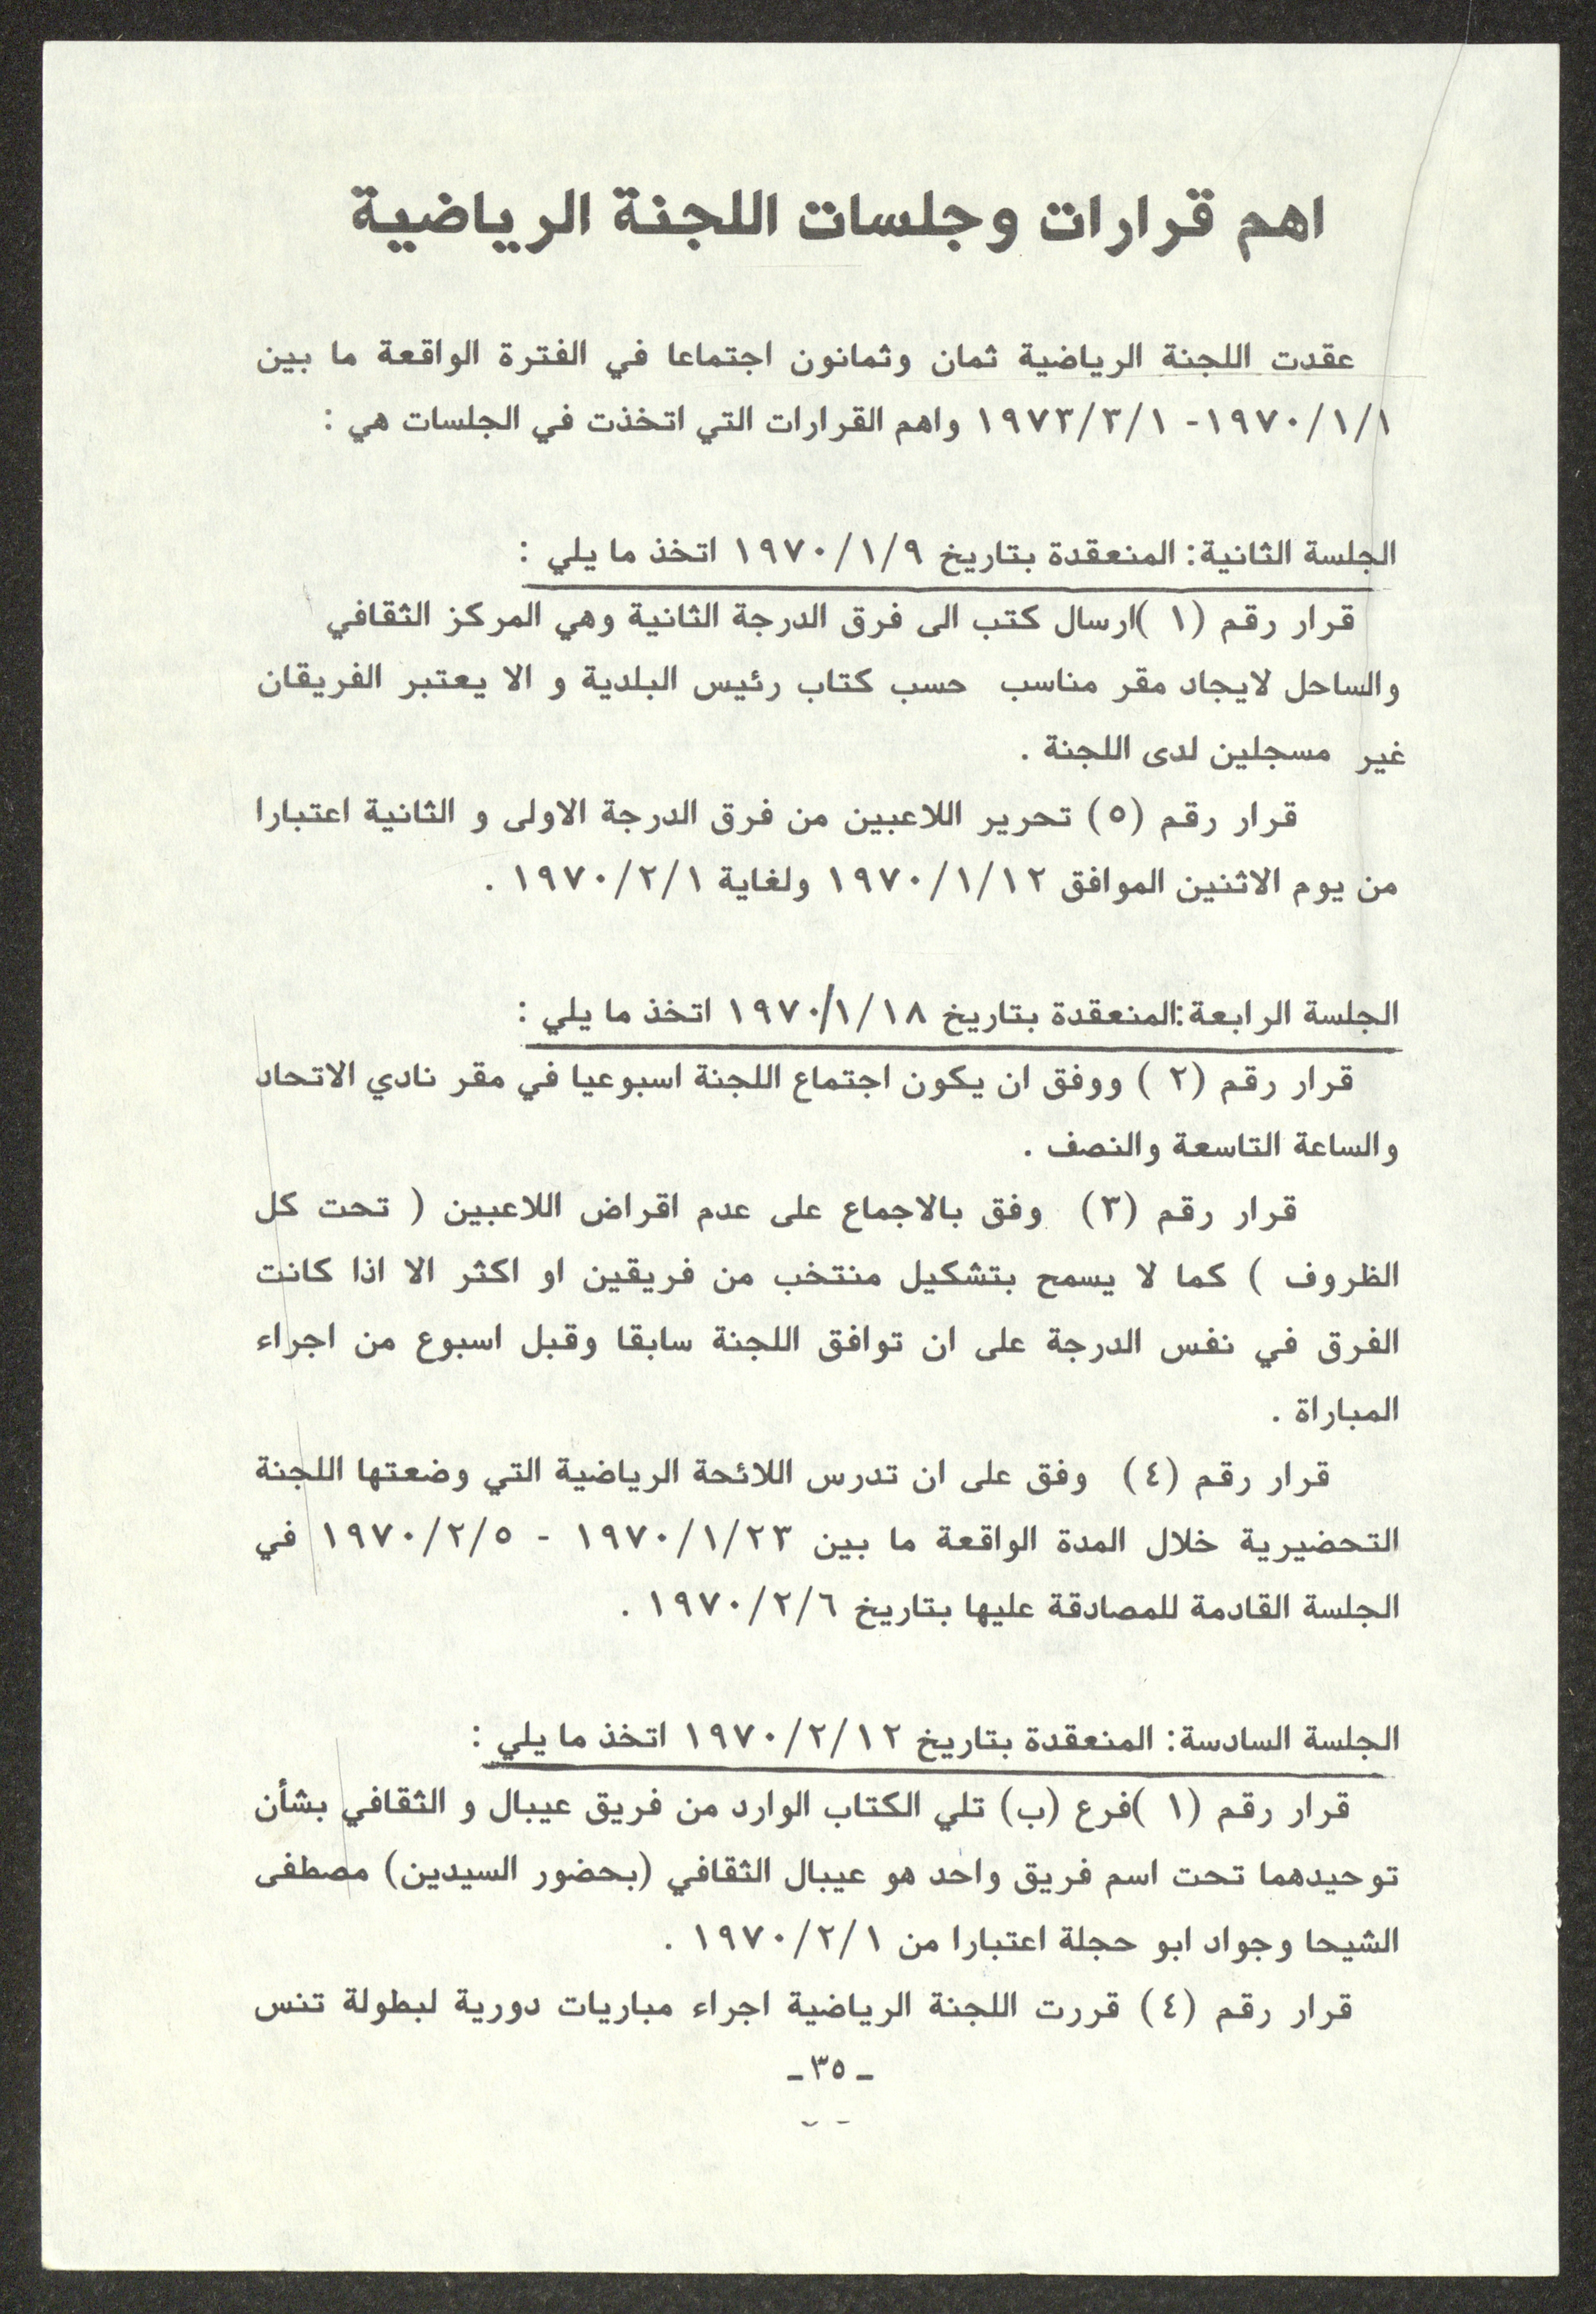 اهم قرارات وجلسات اللجنة الرياضية
عقدت اللجنة الرياضية ثمان وثمانون اجتماعا في الفترة الواقعة ما بين
١٩٧٠/١/١- ١٩٧٣/٣/١ واهم القرارات التي اتخذت في الجلسات هي :
الجلسة الثانية: المنعقدة بتاريخ ١٩٧٠/١/٩ اتخذ ما يلي :
قرار رقم (١ )ارسال كتب الى فرق الدرجة الثانية وهي المركز الثقافي
والساحل لايجاد مقر مناسب حسب كتاب رئيس البلدية و الا يعتبر الفريقان
غير مسجلين لدى اللجنة .
قرار رقم (٥) تحرير اللاعبين من فرق الدرجة الاولى و الثانية اعتبارا
من يوم الاثنين الموافق ١٩٧٠/١/١٢ ولغاية ١٩٧٠/٢/١ .
الجلسة الرابعة:المنعقدة بتاريخ ١٩٧٠/١/١٨ اتخذ ما يلي :
قرار رقم (٢ ) ووفق ان يكون اجتماع اللجنة اسبوعيا في مقر نادي الاتحاد
والساعة التاسعة والنصف .
قرار رقم (٣) وفق بالاجماع على عدم اقراض اللاعبين ( تحت كل
الظروف ) كما لا يسمح بتشكيل منتخب من فريقين او اكثر الا اذا كانت
الفرق في نفس الدرجة على ان توافق اللجنة سابقا وقبل اسبوع من اجراء
المباراة .
قرار رقم (٤) وفق على ان تدرس اللائحة الرياضية التي وضعتها اللجنة
التحضيرية خلال المدة الواقعة ما بين ١٩٧٠/١/٢٣ - ١٩٧٠/٢/٥ في
الجلسة القادمة للمصادقة عليها بتاريخ ١٩٧٠/٢/٦ .
الجلسة السادسة: المنعقدة بتاريخ ١٩٧٠/٢/١٢ اتخذ ما يلي :
قرار رقم (١ )فرع (ب) تلي الكتاب الوارد من فريق عيبال و الثقافي بشأن
توحيدهما تحت اسم فريق واحد هو عيبال الثقافي (بحضور السيدين) مصطفى
الشيحا وجواد ابو حجلة اعتبارا من ١٩٧٠/٢/١ .
قرار رقم (٤) قررت اللجنة الرياضية اجراء مباريات دورية لبطولة تنس
-٣٥-